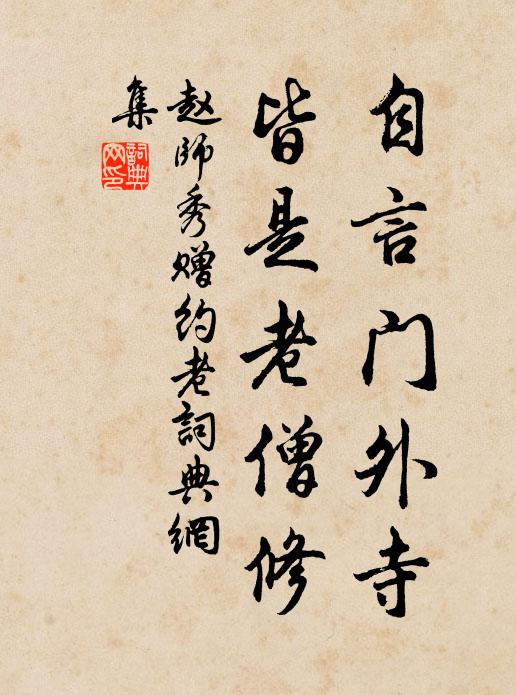 自言门外寺
皆是老僧修
赵师秀赠约老詞典網
集
詞典
网印